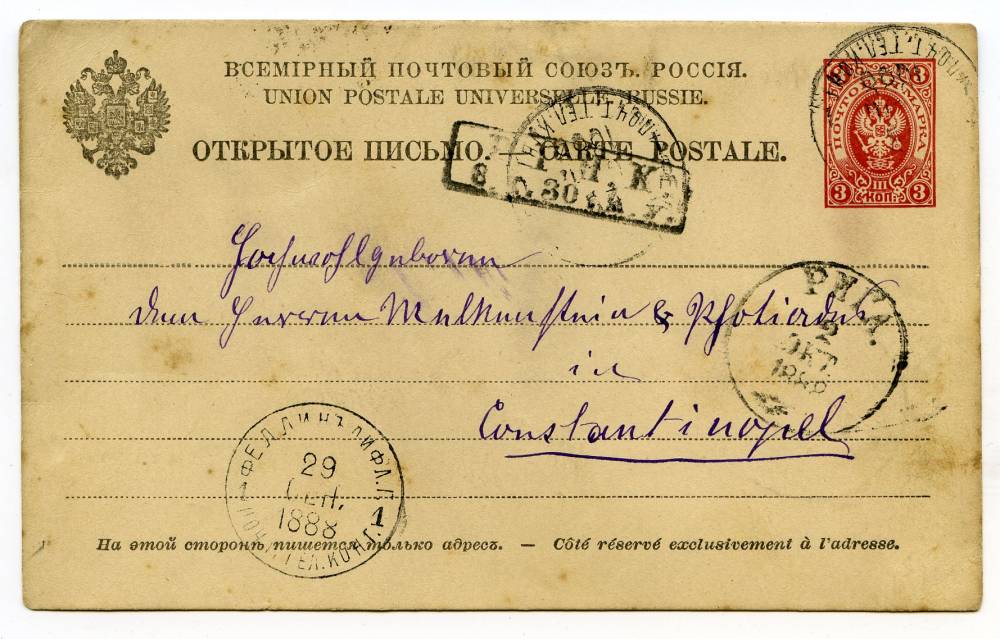 ВСЕМІРНЫЙ ПОЧТОВЫЙ СОЮЗЪ. РОССІЯ.
UNION POSTALE UNIVERSELLE. RUSSIE.
ОТКРЫТОЕ ПИСЬМО. — CARTE POSTALE.
3 3
ПОЧТОВАЯ МАРКА
3 III КОП. 3
30
Hochwohlgeboren
dem Herren & Photiades
in
Constantinopel
РИГА.
2
ОКТ.
1888
ФЕЛЛИНЪ ЛИФЛ. Г.
29
СЕН.
1888
1 ПОЧ. ТЕЛ. КОНТ. 1
На этой сторонѣ пишется только адресъ. — Côté réservé exclusivement à l'adresse.